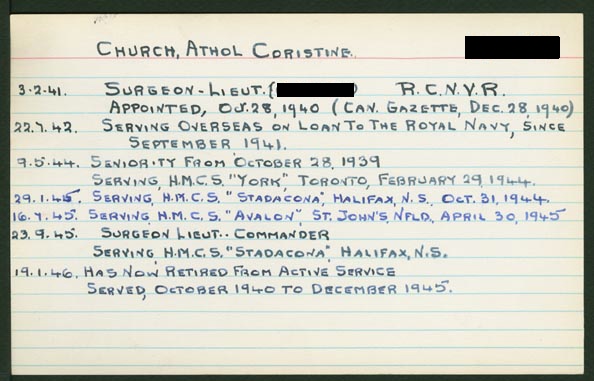 CHURCH, ATHOL CORISTINE.
3·2·41. SURGEON-LIEUT. ( ) R.C.N.V.R.
APPOINTED, OCT. 28, 1940 (CAN. GAZETTE, DEC. 28, 1940)
22.7.42. SERVING OVERSEAS ON LOAN TO THE ROYAL NAVY, SINCE
SEPTEMBER 1941.
9.5.44. SENIORITY FROM OCTOBER 28, 1939
SERVING, H.M.C.S. "YORK", TORONTO, FEBRUARY 29, 1944.
29.1.45. SERVING, H.M.C.S. "STADACONA", HALIFAX, N.S., OCT. 31, 1944.
16.7.45. SERVING, H.M.C.S. "AVALON", ST. JOHN'S, NFLD., APRIL 30, 1945
23.9.45. SURGEON LIEUT.-COMMANDER
SERVING, H.M.C.S. "STADACONA", HALIFAX, N.S.
19.1.46. HAS NOW RETIRED FROM ACTIVE SERVICE
SERVED, OCTOBER 1940 TO DECEMBER 1945.